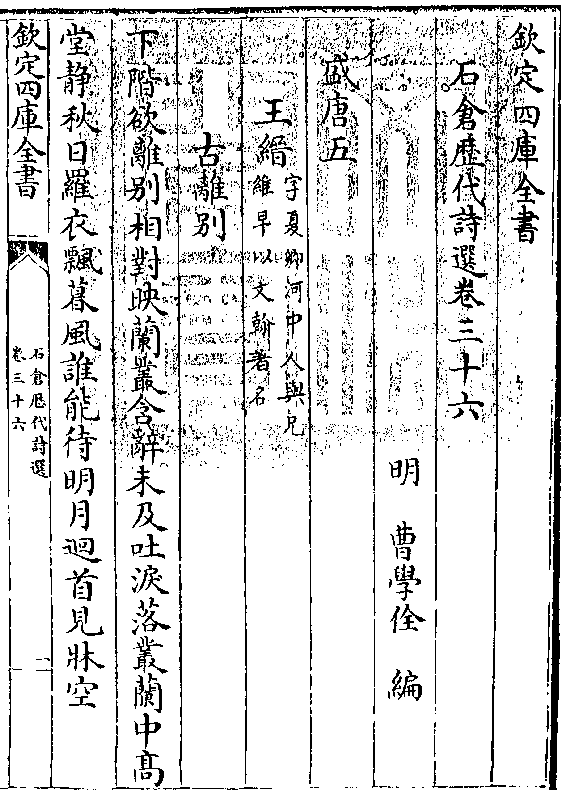 欽定四庫全書
石倉歴代詩選卷三十六
明 曹學佺 編
盛唐五
王縉字夏卿河中人與兄
維早以文翰著名
古離别
下階欲離别相對映蘭叢含辭未及吐淚落叢蘭中髙
堂静秋日羅衣飄暮風誰能待明月迴首見牀空
欽定四庫全書
石倉歴代詩選
卷三十六
一